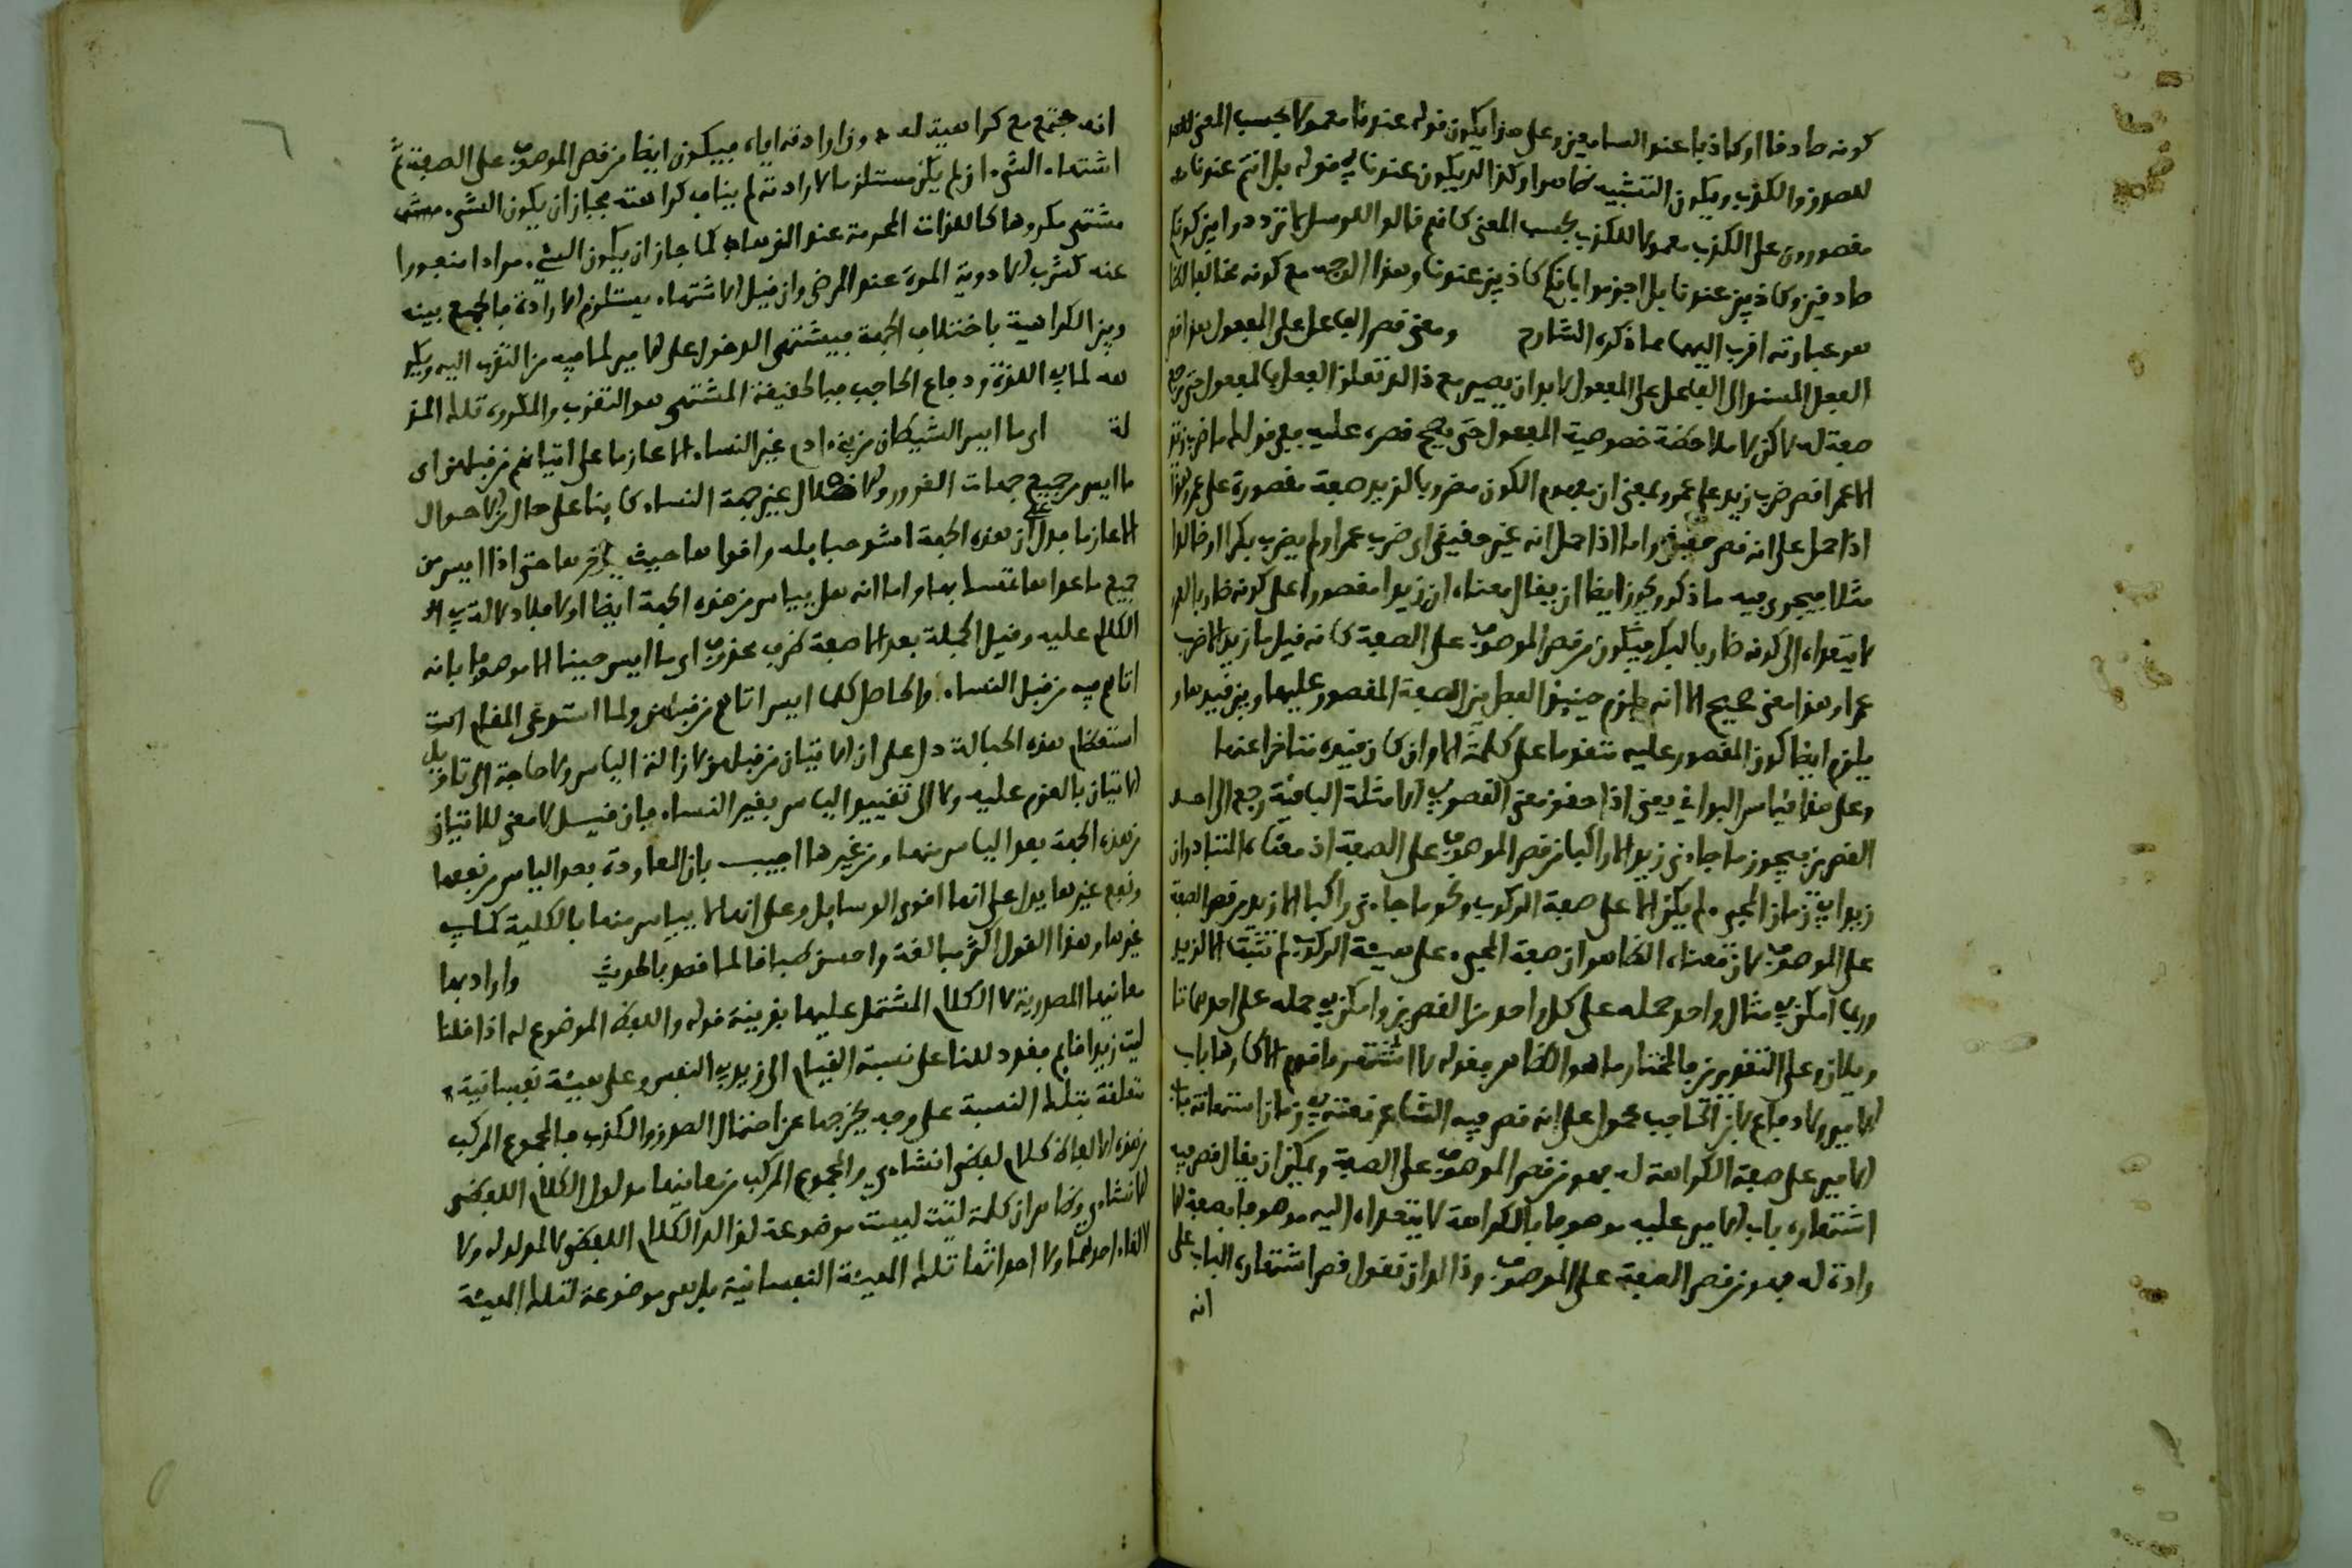 كونه صادقا او كاذبا عند السامعين وعلى هذا يكون قوله عندنا معمولا بحسب المعنى
للصدق والكذب ويكون التشبيه ظاهرا وكذا لك يكون عندنا في قوله بل انتم عندنا
مقصورون على الكذب معمولا للكذب بحسب المعنى كانهم قالوا للرسل لا تتردد وا بين كونكم
صادقين وكاذبين عندنا بل اجزموا بانكم كاذبين عندنا وهذا الوجه مع كونه مخالفا
هو عبارته اقرب اليها مما ذكره الشارح ومعنى قصر الفاعل على المفعول
الفعل المسند الى الفاعل على المفعول لا بد ان يعتبر مع ذلك تعلق الفعل بالمفعول حتى
صفة له لاكن لا ملاحظة خصوصية المفعول حتى يصح قصره عليه فمعنى قولك ما ضرب زيد
الا عمرا قصر ضرب زيد على عمرو بمعنى ان مفهوم الكون مضروبا لزيد صفة مقصورة على عمرو
اذا حمل على انه قصر حقيقي واما اذا حمل انه غير حقيقي اي ضرب عمرا ولم يضرب بكرا او خالدا
مثلا فيجري فيه ما ذكر ويجوز ايضا ان يقال معناه ان زيدا مقصورا على كونه ضاربا
لا يتعداه الى كونه ضاربا لبكر فيكون من قصر الموصوف على الصفة كانه قيل ما زيد الا ضرب
عمرا وهذا معنى صحيح الا انه يلزم حينئذ الفصل بين الصفة المقصور عليها وبين قيدها و
يلزم ايضا كون المقصور عليه متقدما على كلمة الا وان كان قيده متاخرا عنها
وعلى هذا قياس البواقي يعني اذا حقق معنى القصر في الامثلة الباقية رجع الى احد
القصرين فيجوز ما جاءني زيد الا راكبا من قصر الموصوف على الصفة اذ معناه المتبادر ان
زيدا في زمان المجيء لم يكن الا على صفة الركوب ونحو ما جاءني راكبا الا زيد من قصر الصفة
على الموصوف لان معناه الظاهر ان صفة المجيء على هيئة الركوب لم تثبت الا لزيد
وربما امكن في مثال واحد حمله على كل واحد من القصرين وامكن في حمله على احدهما تا
ويلان وعلى التقديرين فالمختار ما هو الظاهر فقوله لا اشتهر يا قوم الا كارها باب
الامير ولا دفاع الحاجب محمول على انه قصر فيه الشاعر نفسه في زمان اشتهائه باب
الامير على صفة الكراهة له فهو من قصر الموصوف على الصفة ويمكن ان يقال قصر فيه
اشتهاره باب الامير عليه موصوفا بالكراهة لا يتعداه اليه موصوفا بصفة الا
رادة له فهو من قصر الصفة على الموصوف وذا لك ان تقول قصر اشتهاره الباب على
انه
انه مجتمع مع كراهيته له دون ارادته اياه فيكون ايضا من قصر الموصوف على الصفة
اشتهاء الشيء ان لم يكن مستلزما لارادته لم يناف كراهته فجاز ان يكون الشيء
مشتهى مكروها كاللذات المحرمة عند الزهاد كما جاز ان يكون الشيء مرادا منفورا
عنه كشرب الادوية المرة عند المرض وان قيل الاشتهاء يستلزم الارادة فالجمع بينه
وبين الكراهية باختلاف الجهة فيشتهي الدخول على الامير لما فيه من التقرب اليه ويكر
هه لما في المذلة ودفاع الحاجب فبالحقيقة المشتهى هو التقرب والمكروه تلك المذ
لة اي ما ايس الشيطان من بني ادم غير النساء الا عازما على اتيانهم من قبلهن اي
ما ايس من جميع جهات الغرور والاضلال غير جهة النساء كاينا على حال من الاحوال
الا عازما فدل على ان هذه الجهة اشد حبايله واقواها حيث يؤخرها حتى اذا ايس من
جميع ما عداها تمسك بها واما انه هل يياس من هذه الجهة ايضا او لا فلا دلالة في
الكلام عليه وقيل الجملة بعد الا صفة ظرف محذوف اي ما ايس حينا الا موصوفا بانه
اتاهم فيه من قبل النساء والحاصل كلما ايس اتاهم من قبلهن ولما استدعى المقام
استعظام هذه الحبالة دل على ان الاتيان من قبلهن لازالة الياس ولا حاجة الى تاويل
الاتيان بالعزم عليه ولا الى تقييد الياس بغير النساء فان قيل لا معنى للاتيان
من هذه الجهة بعد الياس منها ومن غيرها اجيب بان المعاودة بعد الياس من نفعها
ونفع غيرها يدل على انها اقوى الوسايل وعلى انه لا يياس منها بالكلية كما في
غيرها وهذا القول اكثر مبالغة واحسن طباقا لما قصد بالحديث واراد بها
معانيها المصدرية لا الكلام المشتمل عليها بقرينة قوله واللفظ الموضوع له اذا قلنا
ليت زيدا قايم فقد دللنا على نسبة القيام الى زيد في النفس وعلى هيئة نفسانية
متعلقة بتلك النسبة على وجه يخرجها عن احتمال الصدق والكذب فالمجموع المركب
من هذه الالفاظ كلام لفظي انشاءي والمجموع المركب من معانيها مدلول الكلام اللفظي
الانشاءي وظاهر ان كلمة ليت ليست موضوعة لذا لك الكلام اللفظي ولا لمدلوله ولا
لالقاء احدهما ولا احداثها تلك الهيئة النفسانية بل هي موضوعة لتلك الهيئة